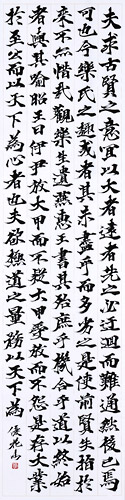 夫求古賢之意宜以大者遠者先之必迂迴而難通然後已焉
可也今樂氏之趣或者其未盡乎而多劣之是使前賢失指於
來不亦惜哉觀樂生遺燕惠王書其殆庶乎機合乎道以終始
者與其喻昭王曰伊尹放大甲而不疑大甲受放而不怨是存大業
於至公而以天下為心者也夫欲極道之量務以天下為